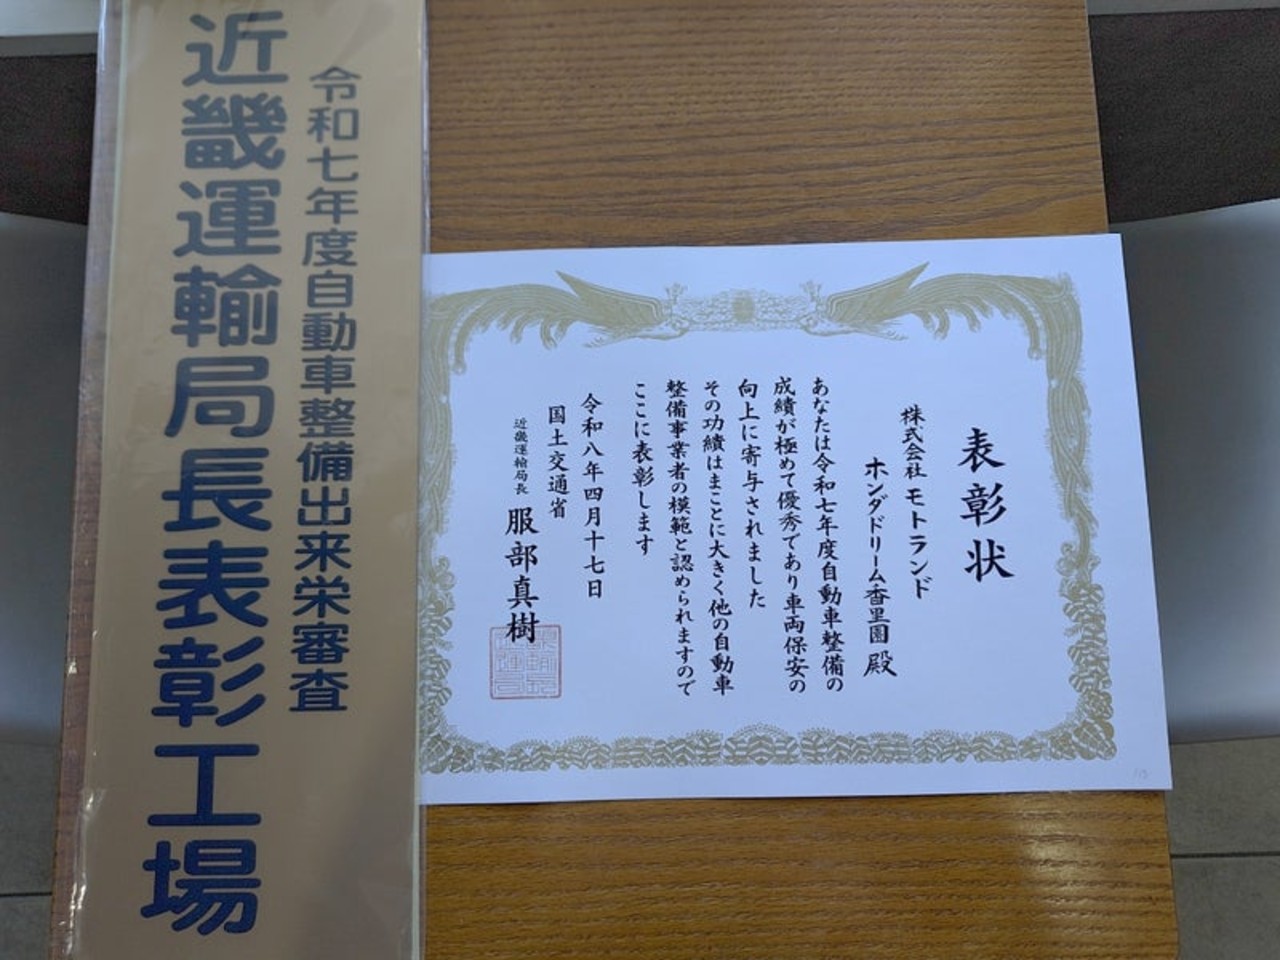 令和七年度自動車整備出来栄審査
近畿運輸局長表彰工場
表彰状
株式会社 モトランド
ホンダドリーム香里園 殿
あなたは令和七年度自動車整備の
成績が極めて優秀であり車両保安の
向上に寄与されました
その功績はまことに大きく他の自動車
整備事業者の模範と認められますので
ここに表彰します
令和八年四月十七日
国土交通省
近畿運輸局長 服部真樹